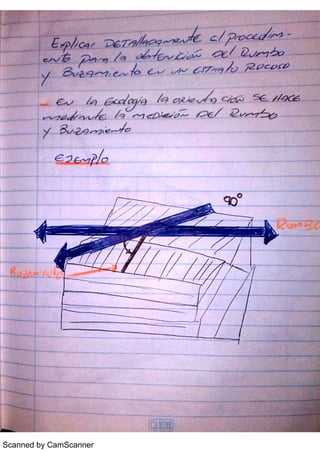 Explicar Detalladamente el procedimi-
ento para la obtención del Rumbo
y Buzamiento en un estrato Rocoso
- en la Geología la orientación se Hace
mediante la medición del Rumbo
y Buzamiento
Ejemplo
90°
Rumbo
Buzamiento
CARIBE
Scanned by CamScanner